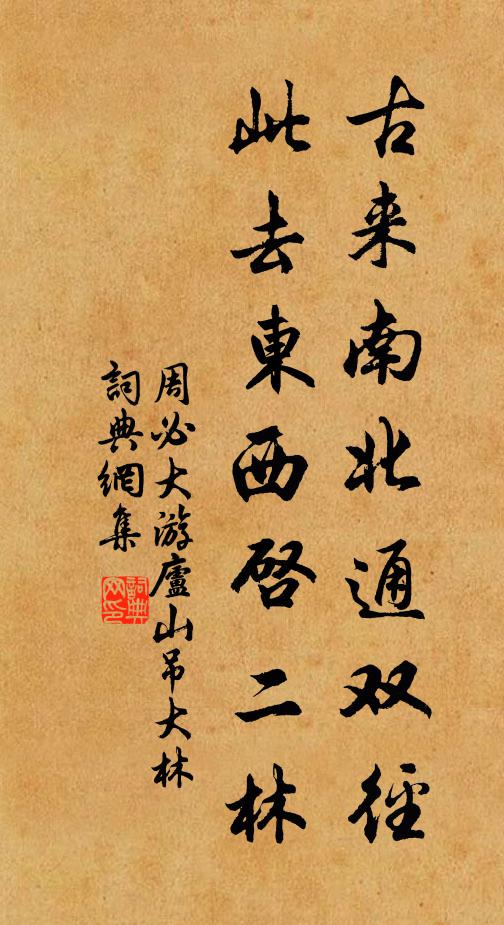 古来南北通双徑
此去東西啓二林
周必大游廬山吊大林
詞典網集
詞典网印